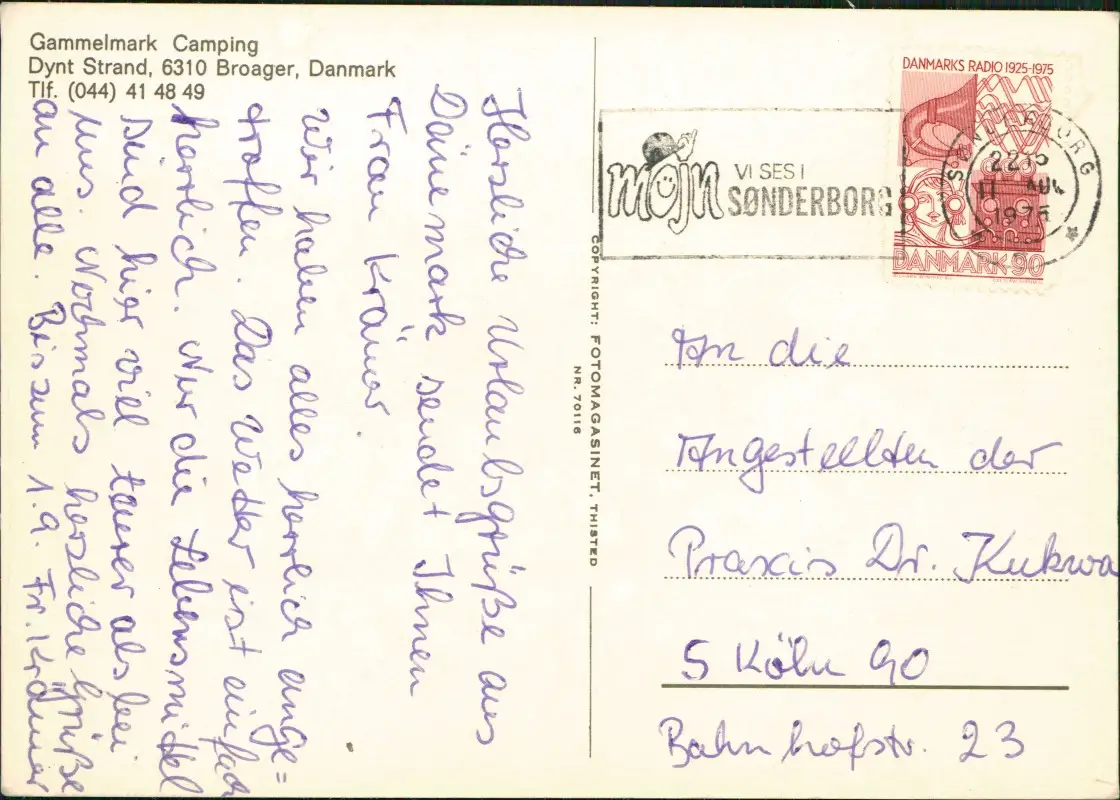 Gammelmark Camping
Dynt Strand, 6310 Broager, Danmark
Tlf. (044) 41 48 49
Herzliche Urlaubsgrüße aus
Dänemark sendet Ihnen
Frau Krämer.
Wir haben alles herrlich ange=
troffen. Das Wetter ist einfach
herrlich. Nur die Lebensmittel
sind hier viel teurer als bei
uns. Nochmals herzliche Grüße
an alle. Bis zum 1.9. Fr. Krämer
COPYRIGHT: FOTOMAGASINET, THISTED
NR. 70116
mojn
VI SES I
SØNDERBORG
DANMARKS RADIO 1925-1975
DANMARK 90
SØNDERBORG
11 AUG
1975
An die
Angestellten der
Praxis Dr. Kukwa
5 Köln 90
Bahnhofstr. 23